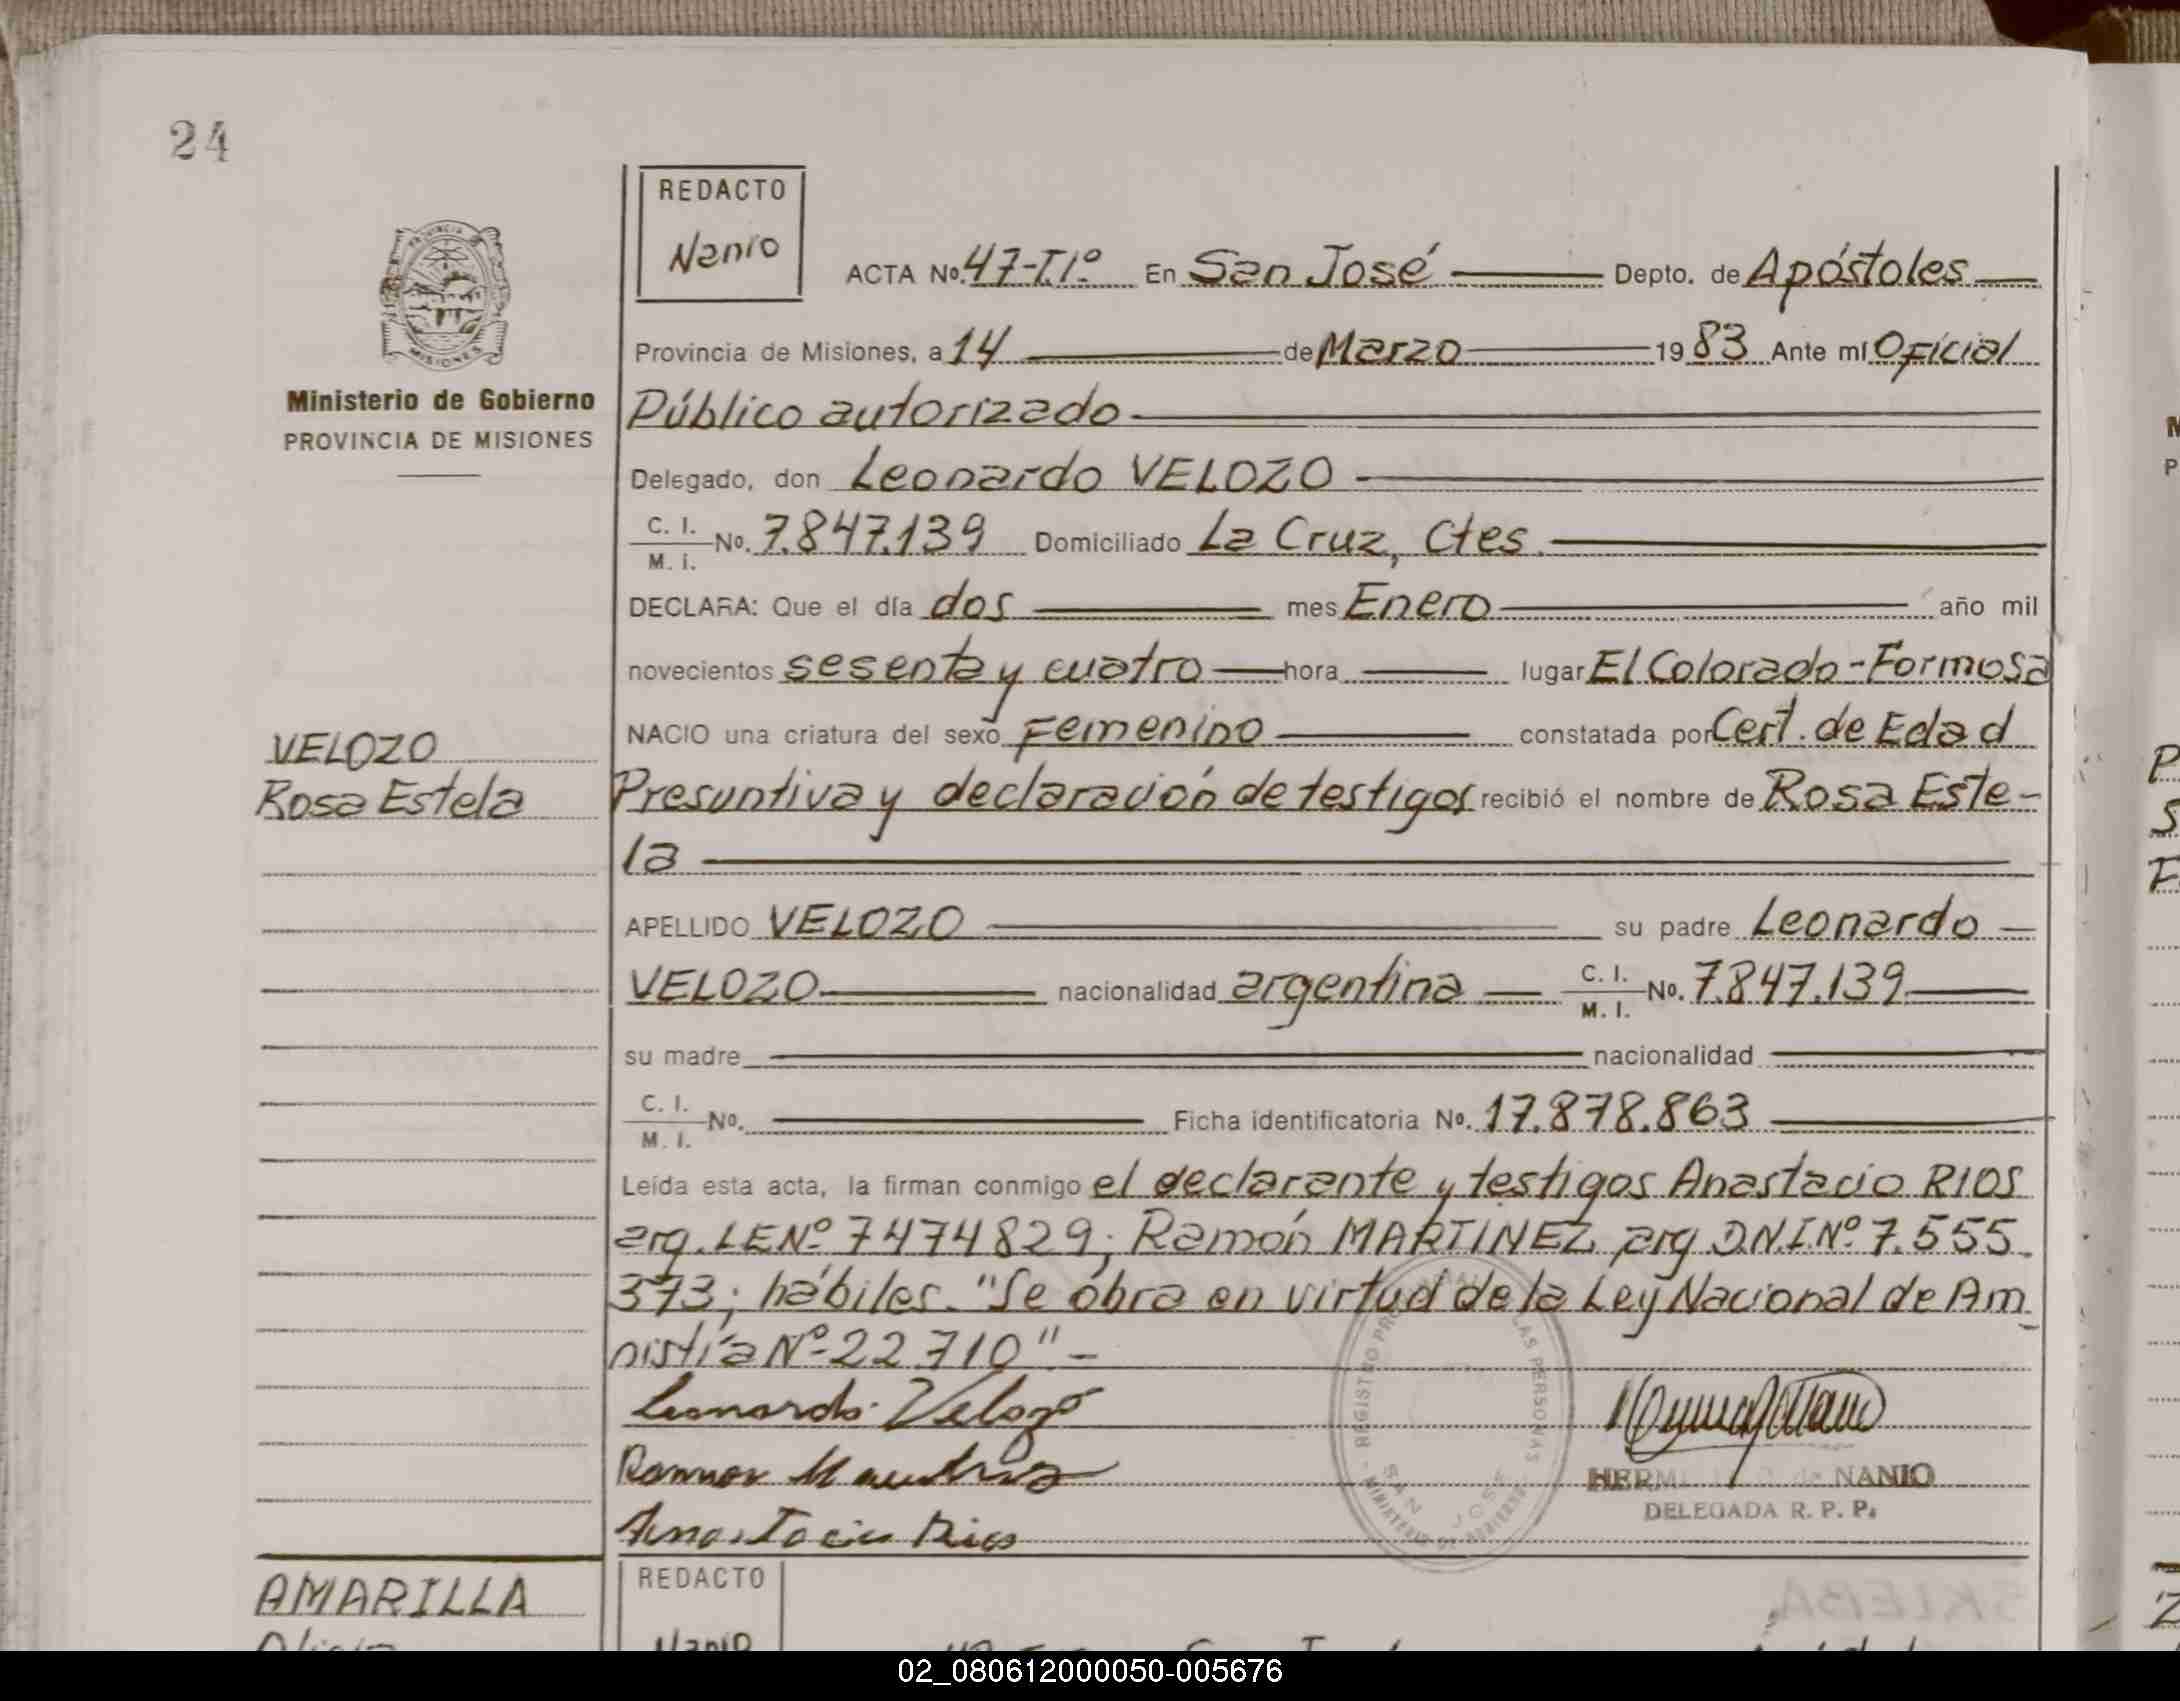 24
REDACTO
Nanio
PROVINCIA DE
MISIONES
Ministerio de Gobierno
PROVINCIA DE MISIONES
ACTA Nº. 47-T.1º En San José Depto. de Apóstoles
Provincia de Misiones, a 14 de Marzo 1983 Ante mí Oficial
Público autorizado
Delegado, don Leonardo VELOZO
C. I. / M. I. Nº. 7.847.139 Domiciliado La Cruz, Ctes.
DECLARA: Que el día dos mes Enero año mil
novecientos sesenta y cuatro hora lugar El Colorado-Formosa
NACIO una criatura del sexo Femenino constatada por Cert. de Edad
Presuntiva y declaración de testigos recibió el nombre de Rosa Este-
la
VELOZO
Rosa Estela
APELLIDO VELOZO su padre Leonardo
VELOZO nacionalidad argentina C. I. / M. I. Nº. 7.847.139
su madre nacionalidad
C. I. / M. I. Nº. Ficha identificatoria Nº. 17.878.863
Leída esta acta, la firman conmigo el declarante y testigos Anastacio RIOS
arg. LE Nº 7474829; Ramón MARTINEZ arg D.N.I. Nº 7.555.
373; hábiles. "Se obra en virtud de la Ley Nacional de Am
nistía Nº 22.710" -
Leonardo Velozo
Ramon Martinez
Anastacio Rios
REGISTRO PROVINCIAL DE LAS PERSONAS
SAN JOSE
MINISTERIO DE GOBIERNO
NANIO
DELEGADA R. P. P.
AMARILLA
REDACTO
Nanio
02_080612000050-005676